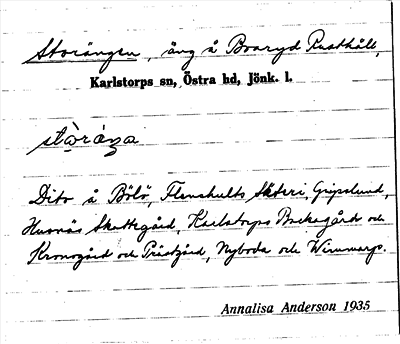 Storängen, äng å Boaryd Rusthåll,
Karlstorps sn, Östra hd, Jönk. l.
Dito å Bölö, Flenshults Säteri, Gripslund,
Skattegård, Karlstorps och
Kronogård och Prästgård, Nyboda och
Annalisa Anderson 1935